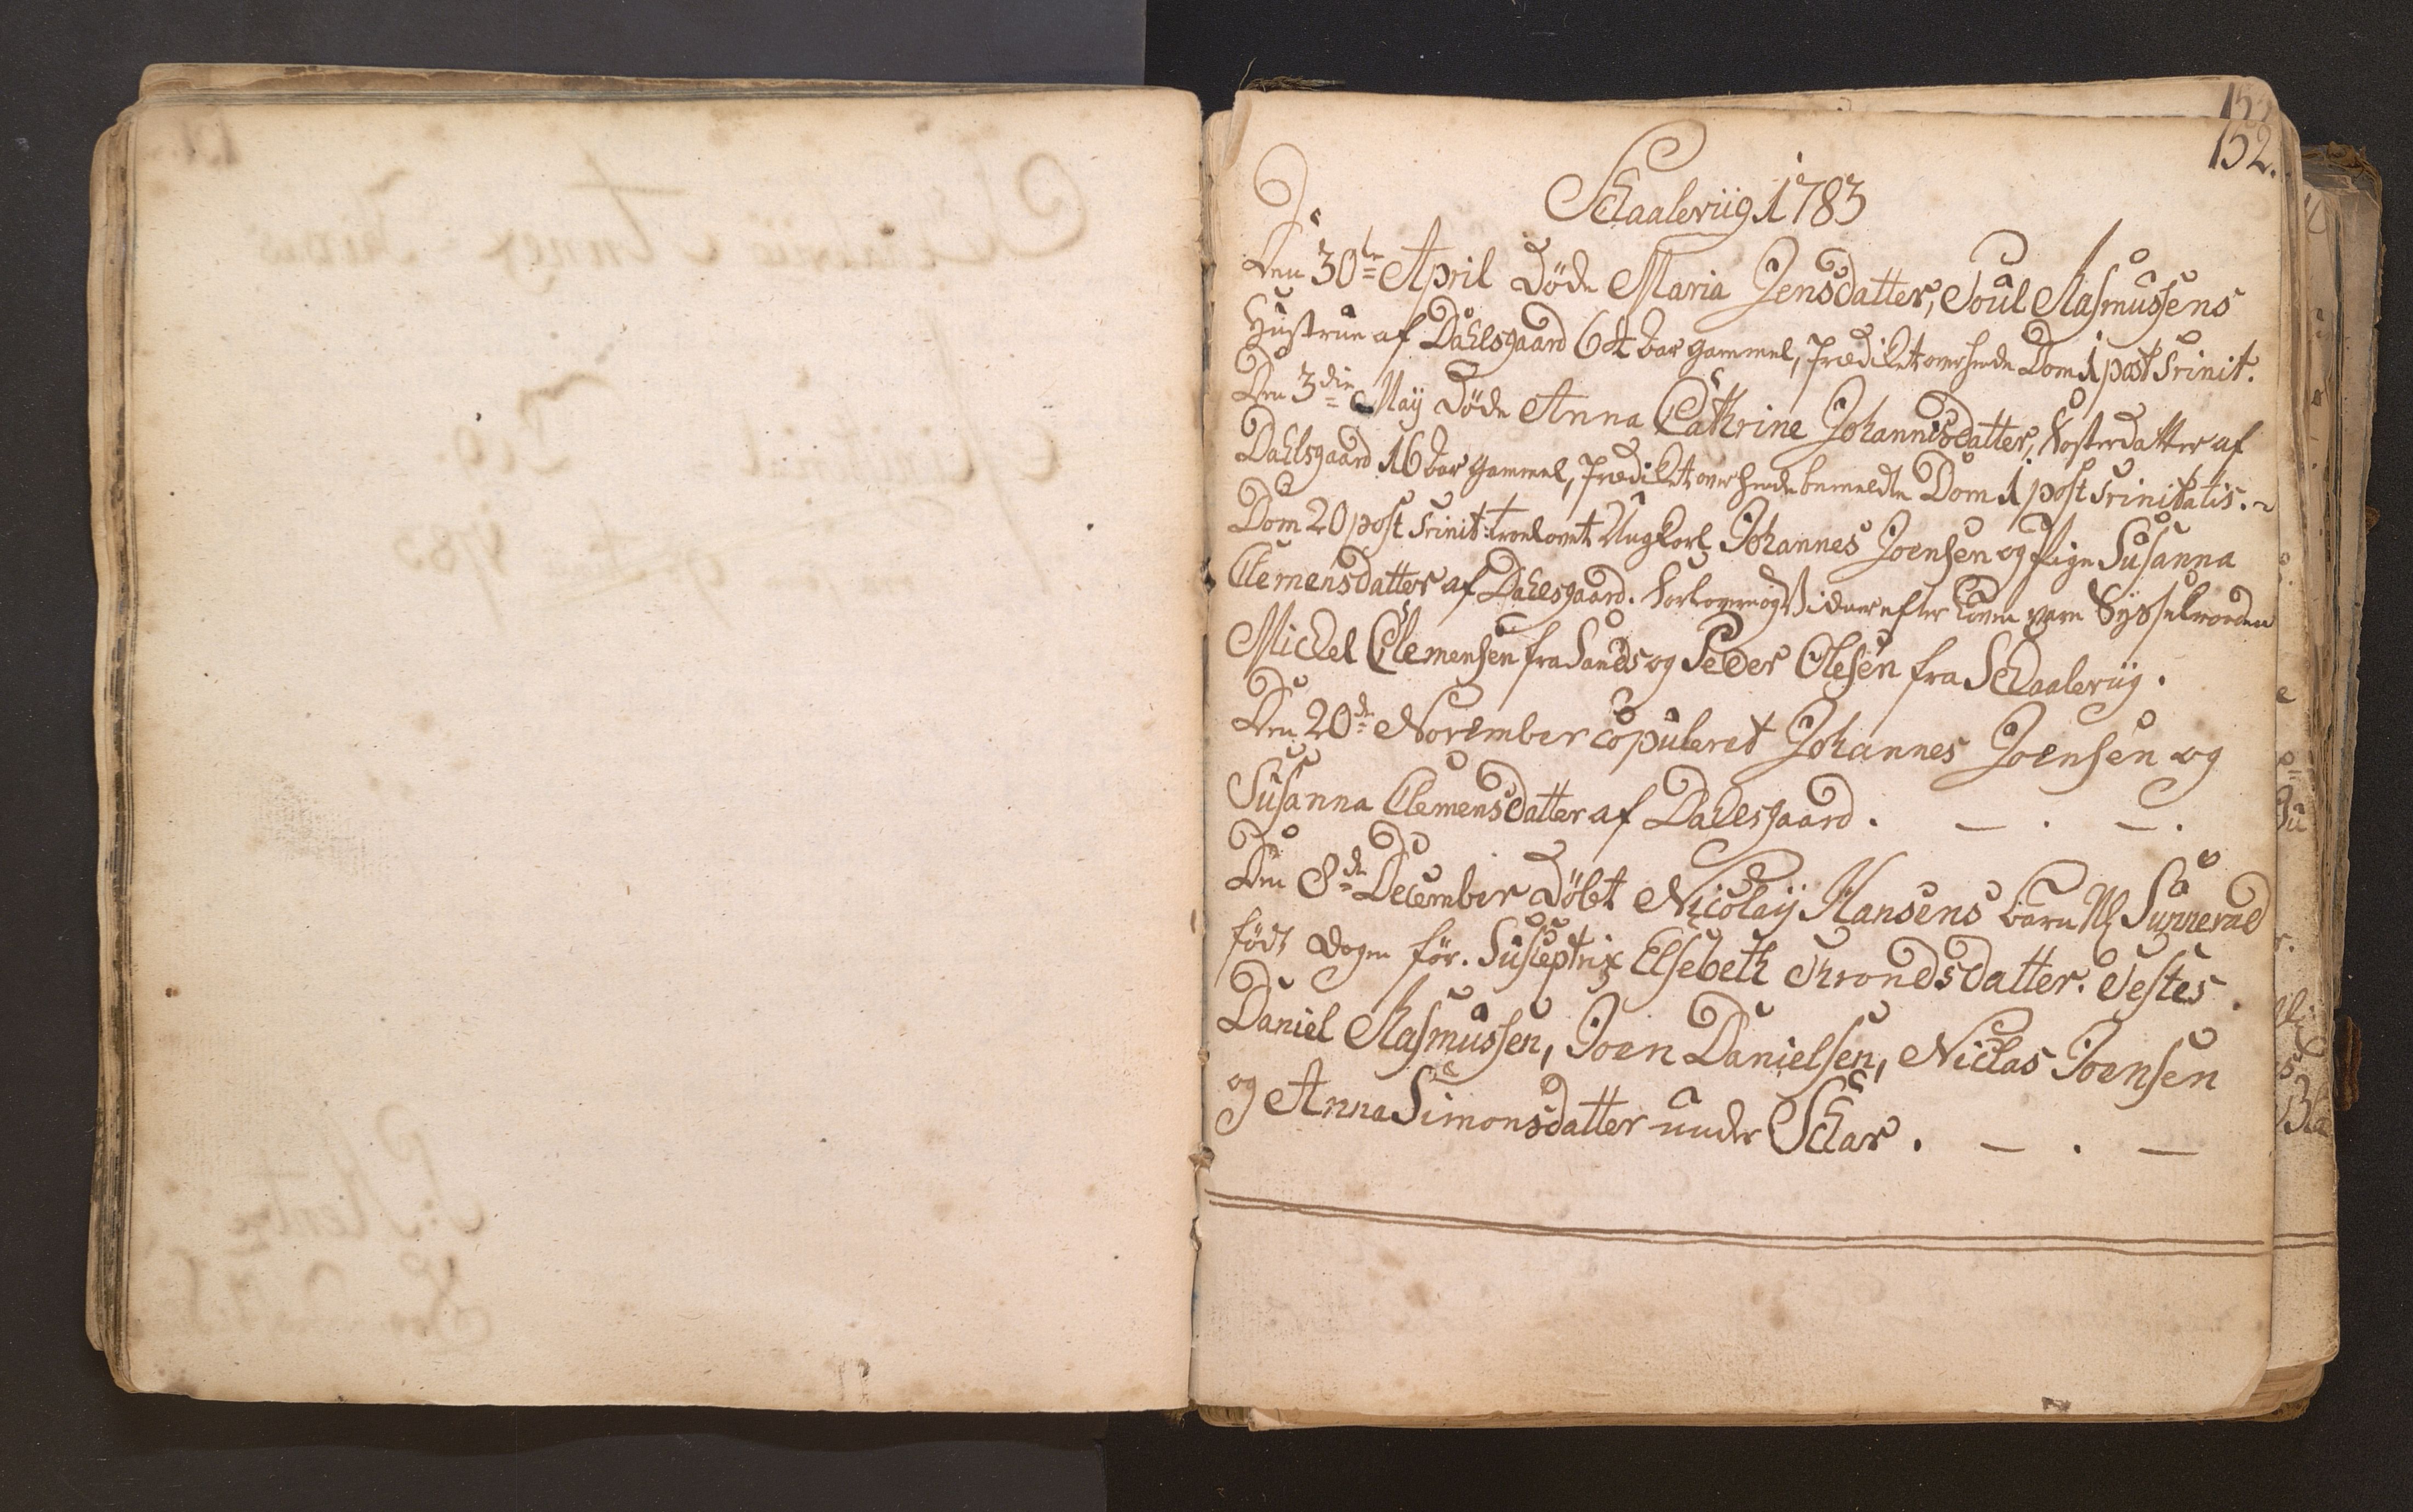 152.
Schaalevüg 1783
Den 30te April Döde Maria Jensdatter, Poul Rasmussens
Hustrue af Dahlsgaard 64 Aar gammel, Prædiket over hende Dom 1 post Trinit.
Den 3die Maÿ Döde Anna Cathrine Johannisdatter, Fosterdatter af
Dahlsgaard 16 Aar gammel, Prædiket over hende bemeldte Dom 1 post Trinitatis.
Dom 20 post Trinit: troelovet Ungkarl Johannes Joensen og Pige Susanna
Clemensdatter af Dahlsgaard. Forlovere og Vidner efter Loven vare Sysselmanden
Michel Clemensen fra Sands og Peder Olesen fra Schaalevüg.
Den 20de November copuleret Johannes Joensen og
Susanna Clemensdatter af Dahlsgaard. — . — .
Den 8de December Döbt Nicolaÿ Hansens barn N Sunneva
födt dagen för. Susceptrix Elsebeth Throndsdatter. Testes
Daniel Rasmussen, Joen Danielsen, Niclas Joensen
og Anna Simonsdatter under Schar. — . —